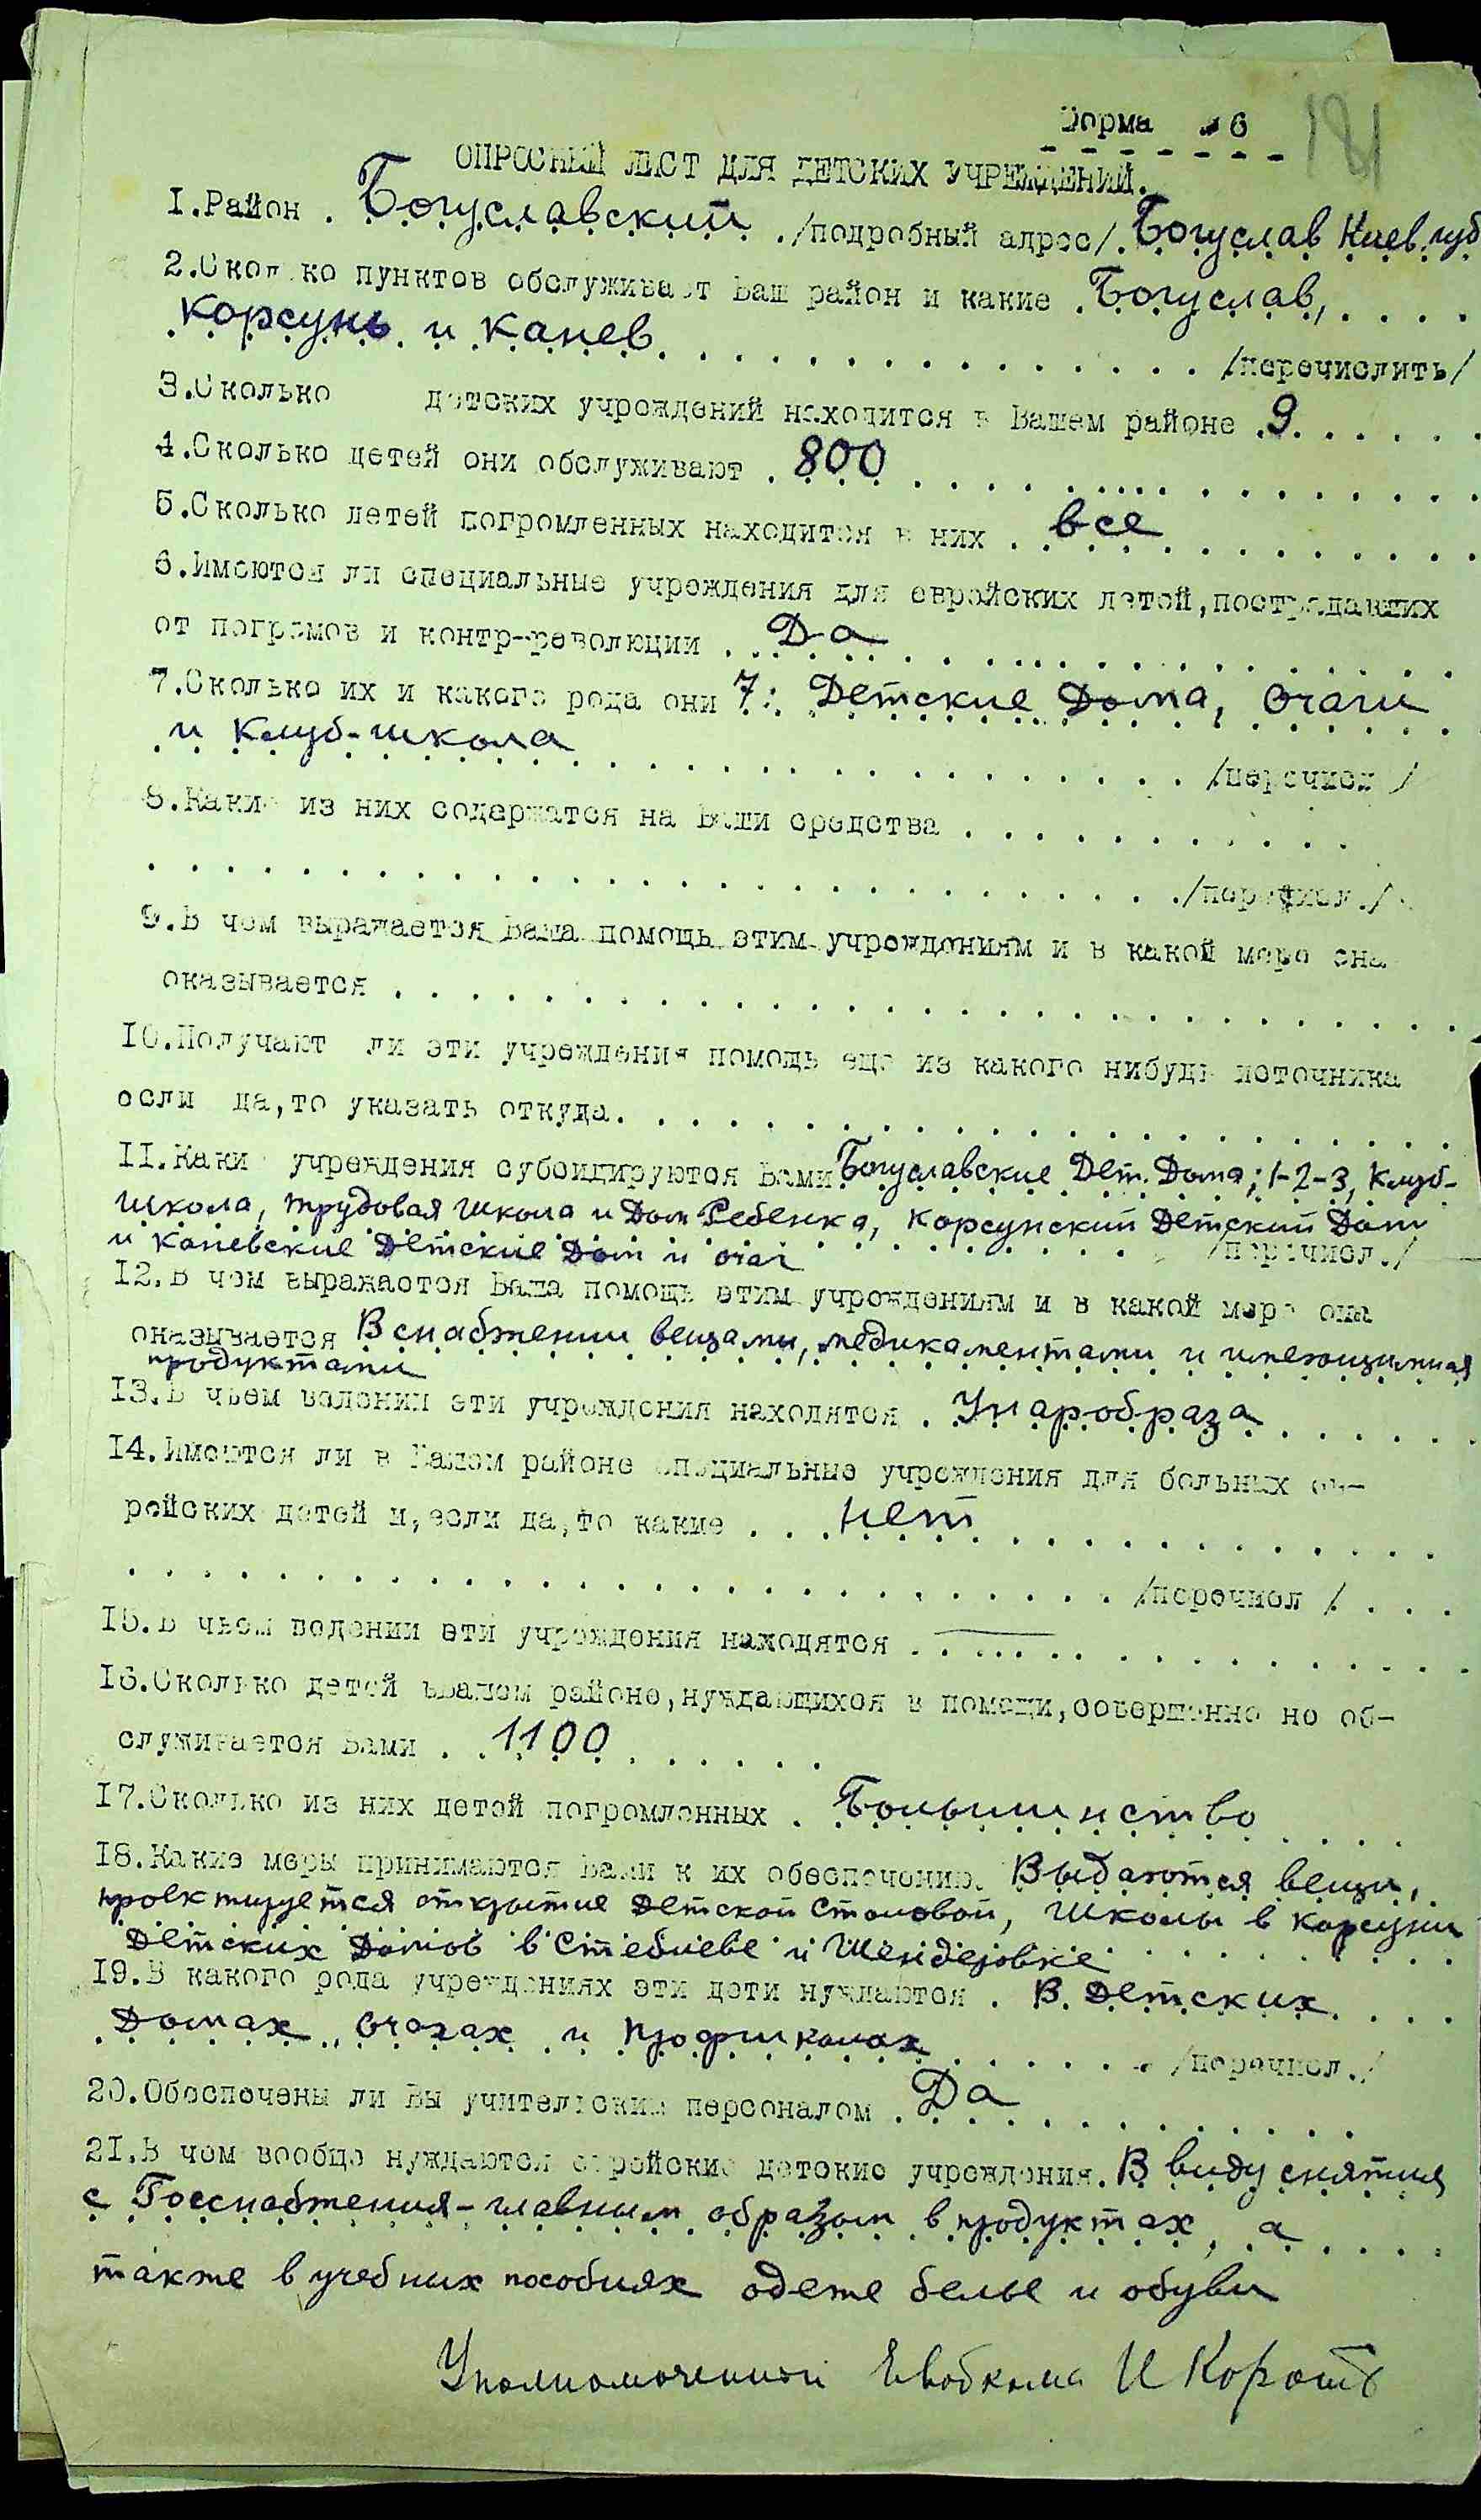 Форма № 6
181
ОПРОСНЫЙ ЛИСТ ДЛЯ ДЕТСКИХ УЧРЕЖДЕНИЙ.
1.Район . Богуславский ./подробный адрес/. Богуслав Киев. губ
2.Сколько пунктов обслуживает Ваш район и какие . Богуслав, . . . .
Корсунь и Канев . . . . . . . . . . . . . . . /перечислить/
3.Сколько детских учреждений находится в Вашем районе . 9 . . . . .
4.Сколько детей они обслуживают . 800 . . . . . . . . . . . . . . .
5.Сколько детей погромленных находится в них . все . . . . . . . . .
6.Имеются ли специальные учреждения для еврейских детей,пострадавших
от погромов и контр-революции . Да . . . . . . . . . . . . . . . .
7.Сколько их и какого рода они 7: Детские Дома, Очаги
и Клуб-школа . . . . . . . . . . . . . . . . . . /перечисл /
8.Какие из них содержатся на Ваши средства . . . . . . . . . . .
. . . . . . . . . . . . . . . . . . . . . . . . . . . . ./перечисл./
9.В чем выражается Ваша помощь этим учреждениям и в какой мере она
оказывается . . . . . . . . . . . . . . . . . . . . . . . . . . . .
10.Получают ли эти учреждения помощь еще из какого нибудь источника
если да,то указать откуда. . . . . . . . . . . . . . . . . . . . . .
11.Какие учреждения субсидируются Вами Богуславские Дет. Дома; 1-2-3, Клуб-
школа, трудовая школа и Дом Ребенка, Корсунский Детский Дом
и Каневские Детские Дом и очаг /перечисл./
12.В чем выражается Ваша помощь этим учреждениям и в какой мере она
оказывается В снабжении вещами, медикаментами и
продуктами
13.В чьем ведении эти учреждения находятся . Унаробраза . . . . . .
14.Имеются ли в Вашем районе специальные учреждения для больных ев-
рейских детей и,если да,то какие . . . нет . . . . . . . . . . . . .
. . . . . . . . . . . . . . . . . . . . . . . . . . . /перечисл /. . .
15.В чьем ведении эти учреждения находятся . . . . . . . . . . . . . .
16.Сколько детей вВашем районе,нуждающихся в помощи,совершенно не об-
служивается Вами . . 1100 . . . . . .
17.Сколько из них детей погромленных . Большинство . . . .
18.Какие меры принимаются Вами к их обеспечению. Выдаются вещи,
проектируется открытие Детской Столовой, школы в Корсуни
Детских Домов в Стеблеве и Шендеровке . . . . . . . .
19.В какого рода учреждениях эти дети нуждаются . В Детских . . . .
Домах, Очагах и профшколах . . . . . . /перечисл./
20.Обеспечены ли Вы учительским персоналом . Да . . . . . . . . . .
21.В чем вообще нуждаются еврейские детские учреждения. В виду снятия
с Госснабжения - главным образом в продуктах, а . . . .
также в учебных пособиях одеже белье и обуви
Уполномоченный Евобкома И Корот